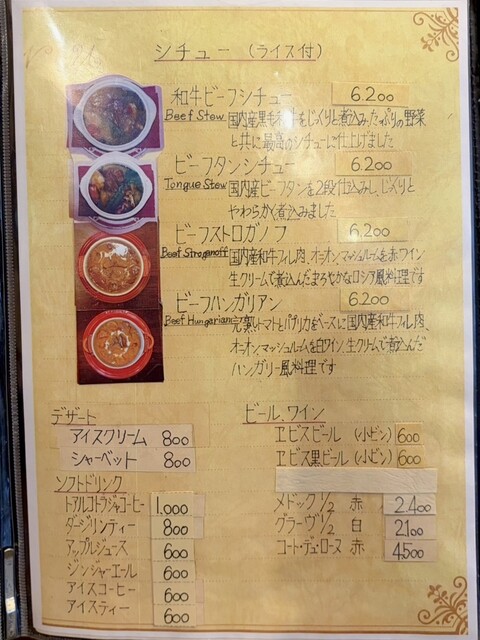 シチュー (ライス付)
和牛ビーフシチュー 6.200
Beef Stew 国内産黒毛和牛をじっくりと煮込みたっぷりの野菜
と共に最高のシチューに仕上げました
ビーフタンシチュー 6.200
Tongue Stew 国内産ビーフタンを2段仕込みし、じっくりと
やわらかく煮込みました
ビーフストロガノフ 6.200
Beef Stroganoff 国内産和牛フィレ肉、オニオン、マッシュルームを赤ワイン
生クリームで煮込んだまろやかなロシア風料理です
ビーフハンガリアン 6.200
Beef Hungarian 完熟トマトとパプリカをベースに国内産和牛フィレ肉、
オニオン、マッシュルームを白ワイン、生クリームで煮込んだ
ハンガリー風料理です
デザート
アイスクリーム 800
シャーベット 800
ソフトドリンク
トアルコトラジャコーヒー 1,000
ダージリンティー 800
アップルジュース 600
ジンジャーエール 600
アイスコーヒー 600
アイスティー 600
ビール、ワイン
ヱビスビール (小ビン) 600
ヱビス黒ビール (小ビン) 600
メドック 1/2 赤 2.400
グラーヴ 1/2 白 2100
コート・デュ・ローヌ 赤 4500